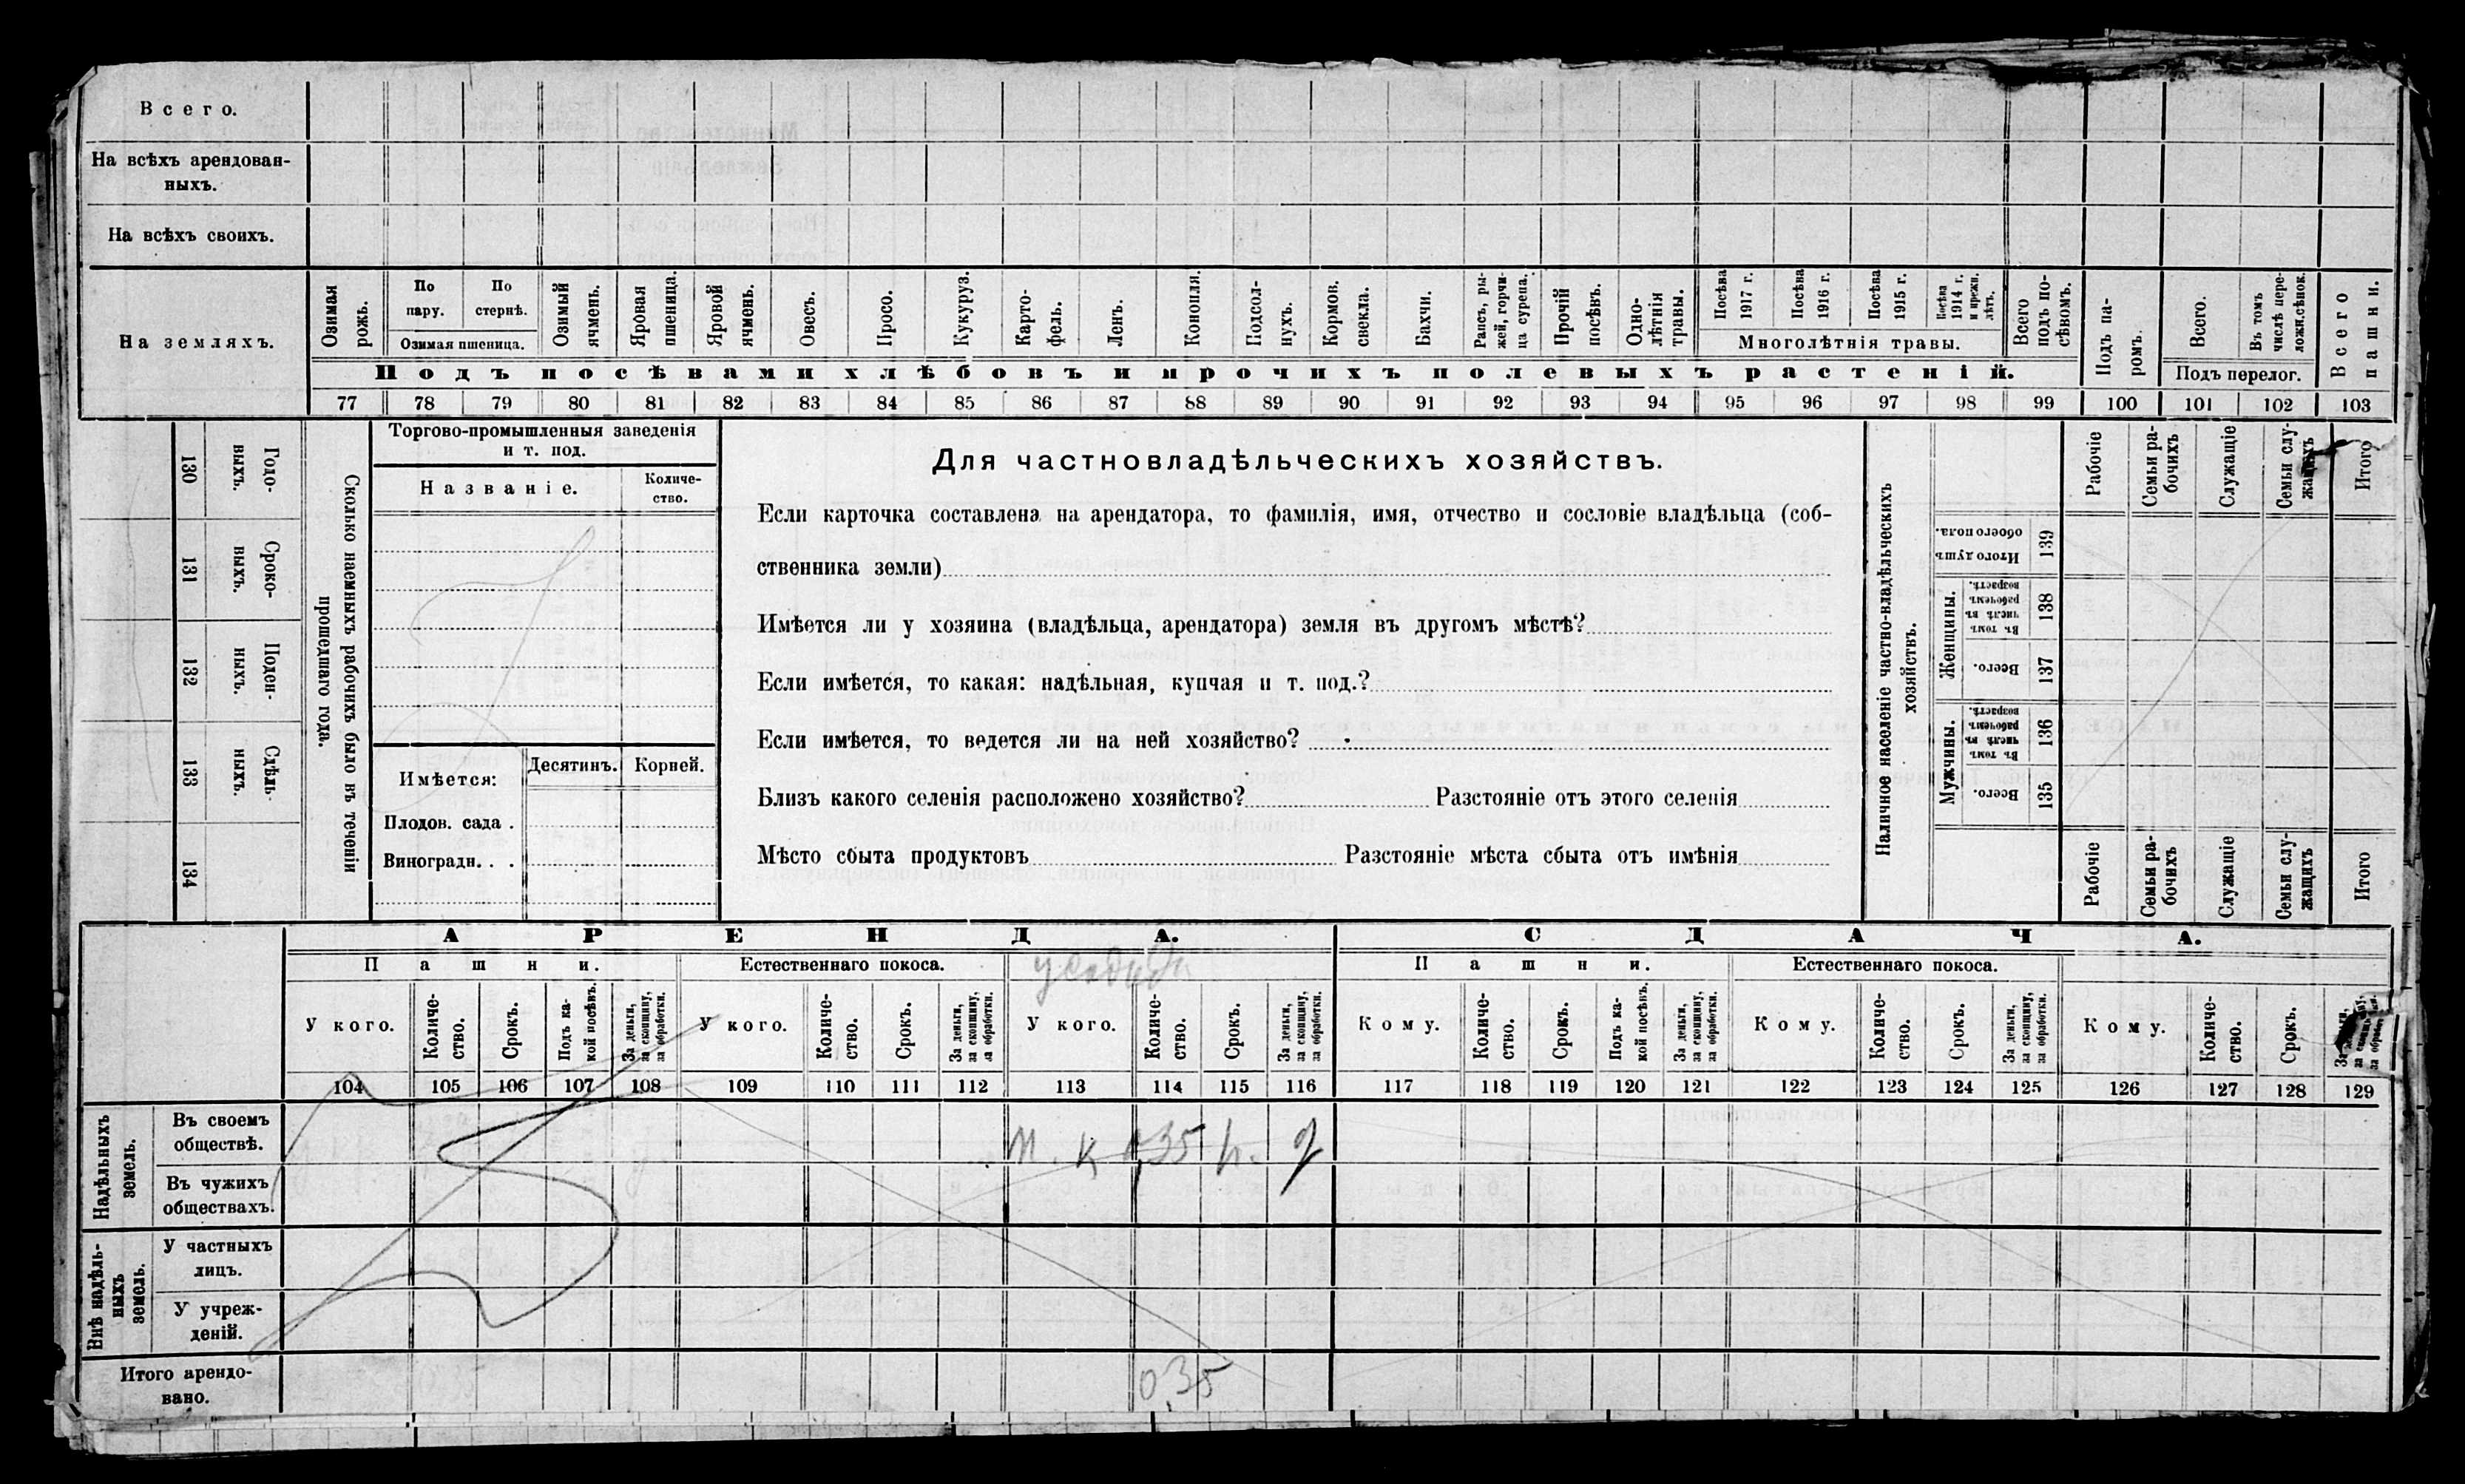 Всего.
На всѣхъ арендован-
ныхъ.
На всѣхъ своихъ.
На земляхъ.
Озимая рожь.
По пару.
По стернѣ.
Озимая пшеница.
Озимый ячмень.
Яровая пшеница.
Яровой ячмень.
Овесъ.
Просо.
Кукуруз.
Карто-
фель.
Ленъ.
Конопля.
Подсол-
нухъ.
Кормов. свекла.
Бахчи.
Рапсъ, ры-
жей, горчи-
ца сурепа.
Прочій посѣвъ.
Одно-
лѣтнія травы.
Посѣва 1917 г.
Посѣва 1916 г.
Посѣва 1915 г.
Посѣва 1914 г. и прежн. лѣтъ.
Многолѣтнія травы.
Всего подъ по-
сѣвомъ.
Подъ па-
ромъ.
Всего.
Въ томъ числѣ пере-
ложн. сѣнок.
Подъ перелог.
Всего пашни.
Подъ посѣвами хлѣбовъ и прочихъ полевыхъ растеній.
77 78 79 80 81 82 83 84 85 86 87 88 89 90 91 92 93 94 95 96 97 98 99 100 101 102 103
130 Годо-
выхъ.
131 Сроко-
выхъ.
132 Поден-
ныхъ.
133 Сдѣль-
ныхъ.
134
Сколько наемныхъ рабочихъ было въ теченіи
прошедшаго года.
Торгово-промышленныя заведенія
и т. под.
Названіе.
Количе-
ство.
Имѣется:
Десятинъ.
Корней.
Плодов. сада .
Виноградн. . .
Для частновладѣльческихъ хозяйствъ.
Если карточка составлена на арендатора, то фамилія, имя, отчество и сословіе владѣльца (соб-
ственника земли)
Имѣется ли у хозяина (владѣльца, арендатора) земля въ другомъ мѣстѣ?
Если имѣется, то какая: надѣльная, купчая и т. под.?
Если имѣется, то ведется ли на ней хозяйство?
Близъ какого селенія расположено хозяйство? Разстояніе отъ этого селенія
Мѣсто сбыта продуктовъ Разстояніе мѣста сбыта отъ имѣнія
Наличное населеніе частно-владѣльческихъ
хозяйствъ.
Рабочіе
Семьи ра-
бочихъ
Служащіе
Семьи слу-
жащихъ
Итого
Итого душъ обоего пола. 139
Женщины.
Въ томъ числѣ въ рабочемъ возрастѣ. 138
Всего. 137
Мужчины.
Въ томъ числѣ въ рабочемъ возрастѣ. 136
Всего. 135
Рабочіе
Семьи ра-
бочихъ
Служащіе
Семьи слу-
жащихъ
Итого
АРЕНДА.
СДАЧА.
Пашни.
Естественнаго покоса.
усадьба
Пашни.
Естественнаго покоса.
У кого.
Количе-
ство.
Срокъ.
Подъ ка-
кой посѣвъ.
За деньги, за скопщину, за обработки.
У кого.
Количе-
ство.
Срокъ.
За деньги, за скопщину, за обработки.
У кого.
Количе-
ство.
Срокъ.
За деньги, за скопщину, за обработки.
Кому.
Количе-
ство.
Срокъ.
Подъ ка-
кой посѣвъ.
За деньги, за скопщину, за обработки.
Кому.
Количе-
ство.
Срокъ.
За деньги, за скопщину, за обработки.
Кому.
Количе-
ство.
Срокъ.
За деньги, за скопщину, за обработки.
104 105 106 107 108 109 110 111 112 113 114 115 116 117 118 119 120 121 122 123 124 125 126 127 128 129
Надѣльныхъ земель.
Въ своемъ
обществѣ.
0,35
Въ чужихъ
обществахъ.
Внѣ надѣль-
ныхъ земель.
У частныхъ
лицъ.
У учреж-
деній.
Итого арендо-
вано.
0,35